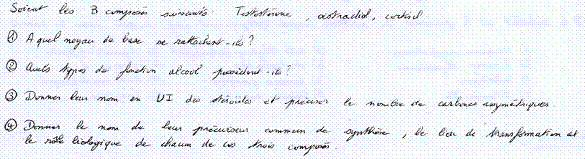 Soient les 3 composés suivants : Testostérone, oestradiol, cortisol
① A quel noyau de base se rattachent-ils ?
② Quels types de fonction alcool possèdent-ils ?
③ Donner leur nom en UI des stéroïdes et préciser le nombre de carbones asymétriques.
④ Donner le nom de leur précurseur commun de synthèse, le lieu de transformation et
le rôle biologique de chacun de ces trois composés.